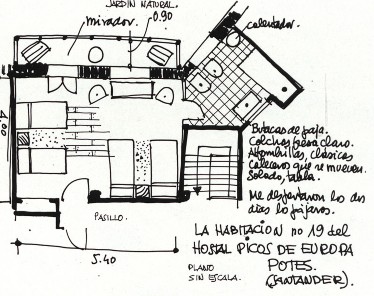 JARDIN NATURAL.
0.90
mirador.
calentador.
4.00
Butacas de paja.
Colchas fiesa claro.
Alfombrillas, clásicas
Cabeceros que se mueven.
Solado, tabla.
Me despertaron los dos
días los pájaros.
PASILLO.
5.40
PLANO
SIN ESCALA.
LA HABITACION no 19 del
HOSTAL PICOS DE EUROPA
POTES.
(SANTANDER).